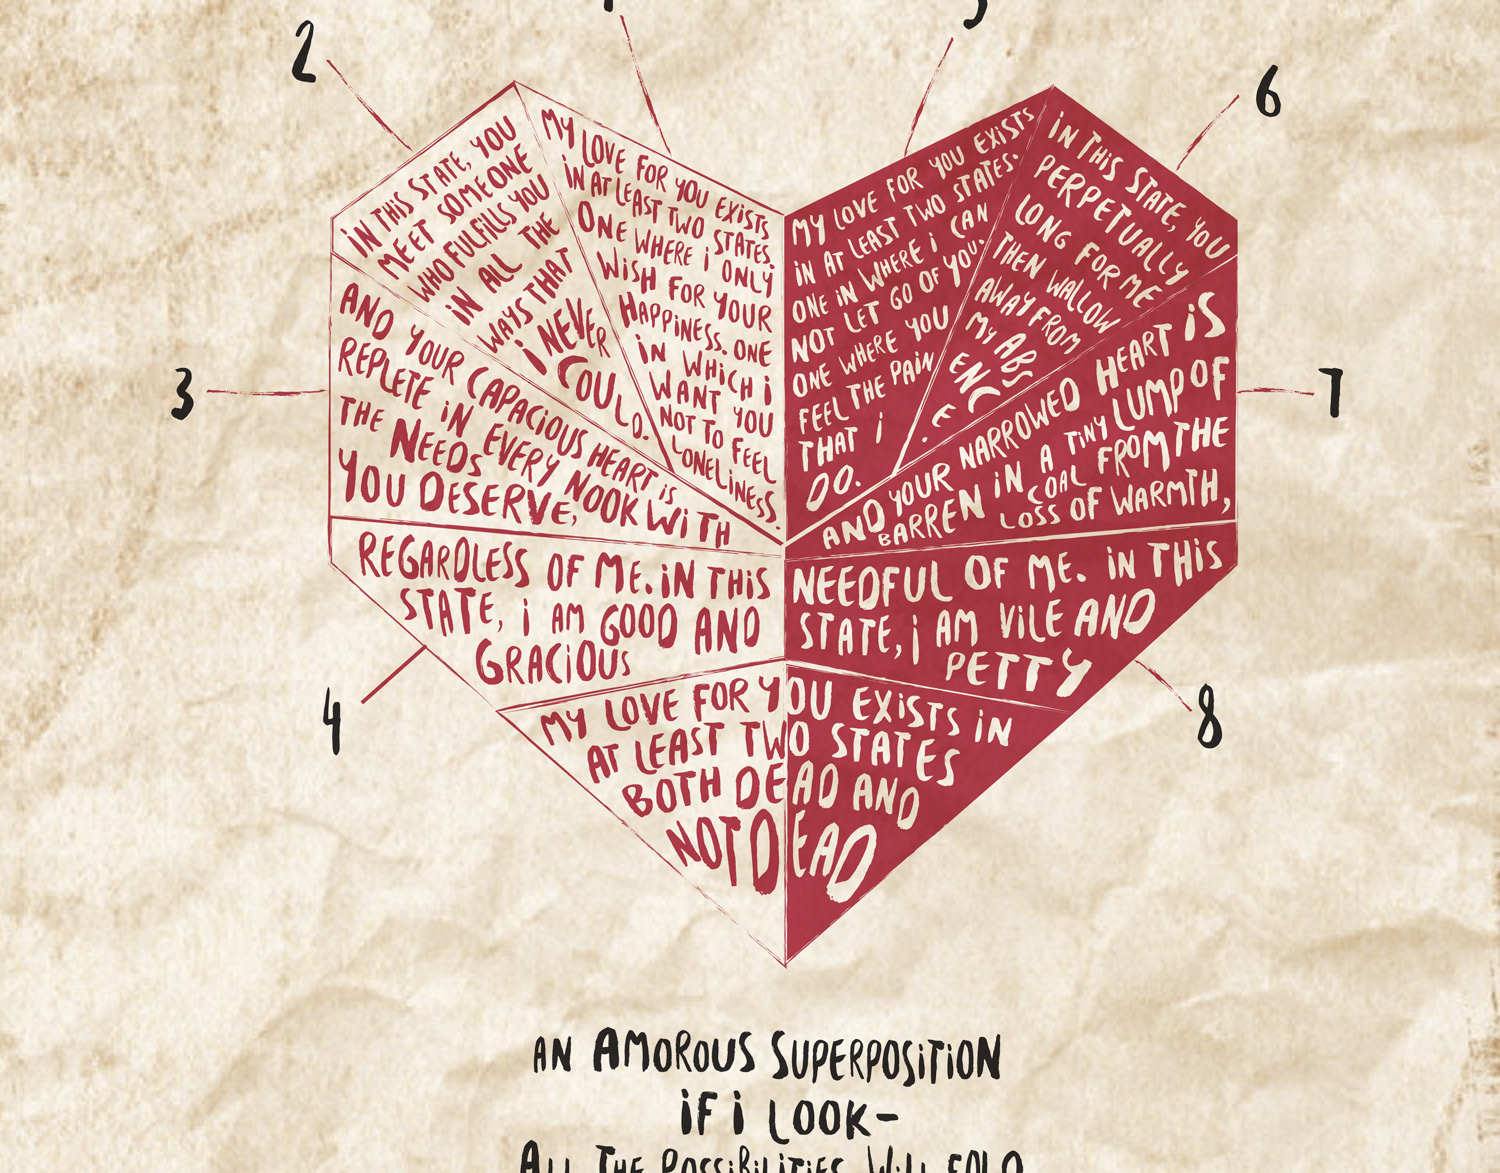 2
5
6
MY LOVE FOR YOU EXISTS
IN AT LEAST TWO STATES.
ONE WHERE i ONLY
WISH FOR YOUR
HAPPINESS. ONE
IN WHICH i
WANT YOU
NOT TO FEEL
LONELINESS.
IN THIS STATE, YOU
MEET SOMEONE
WHO FULFILLS YOU
IN ALL THE
WAYS THAT
i NEVER
COULD.
3
AND YOUR CAPACIOUS HEART IS
REPLETE IN EVERY NOOK WITH
THE NEEDS
YOU DESERVE,
4
REGARDLESS OF ME. IN THIS
STATE, i AM GOOD AND
GRACIOUS
MY LOVE FOR YOU EXISTS
IN AT LEAST TWO STATES.
ONE IN WHERE i CAN
NOT LET GO OF YOU.
ONE WHERE YOU
FEEL THE PAIN
THAT i
DO.
IN THIS STATE, YOU
PERPETUALLY
LONG FOR ME
THEN WALLOW
AWAY FROM
MY ABS
ENC
E.
7
AND YOUR NARROWED HEART IS
BARREN IN A TINY LUMP OF
COAL FROM THE
LOSS OF WARMTH,
8
NEEDFUL OF ME. IN THIS
STATE, i AM VILE AND
PETTY
MY LOVE FOR YOU EXISTS IN
AT LEAST TWO STATES
BOTH DEAD AND
NOT DEAD
AN AMOROUS SUPERPOSITION
IF i LOOK-
ALL THE POSSIBILITIES WILL FOLD